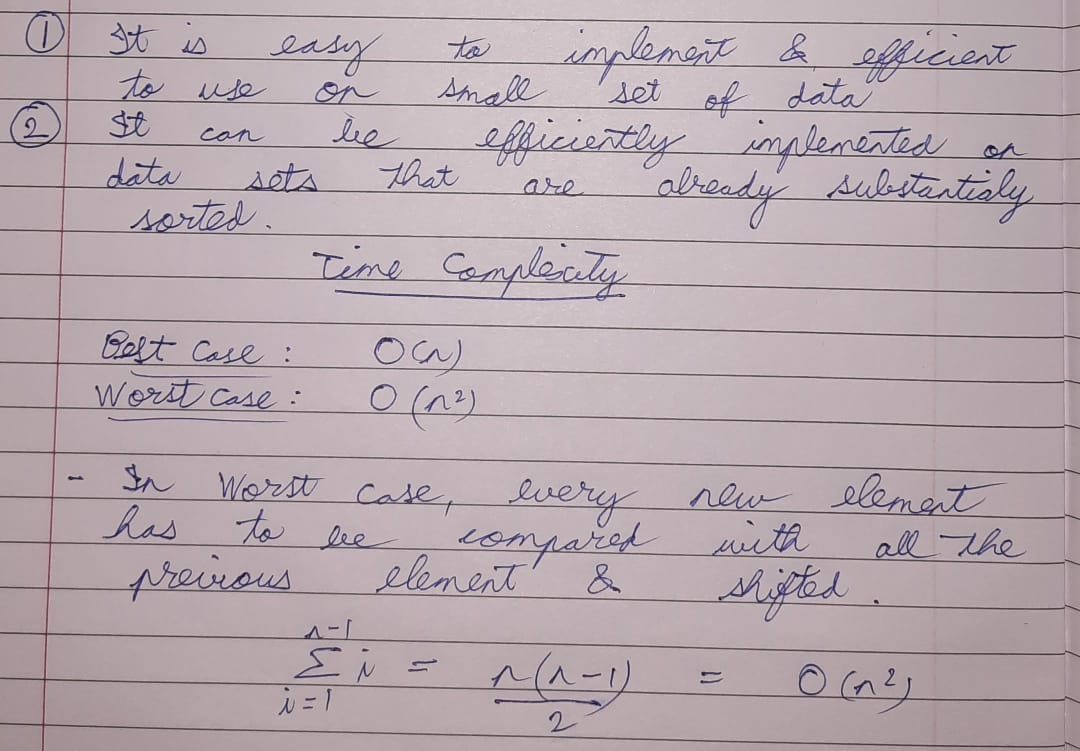 ① It is easy to implement & efficient
to use on small set of data
② It can be efficiently implemented on
data sets that are already substantialy
sorted.
Time Complexity
Best Case : O(n)
Worst Case : O(n²)
- In Worst Case, every new element
has to be compared with all the
previous element & shifted.
n-1
Σ i = n(n-1) = O(n²)
i=1 2